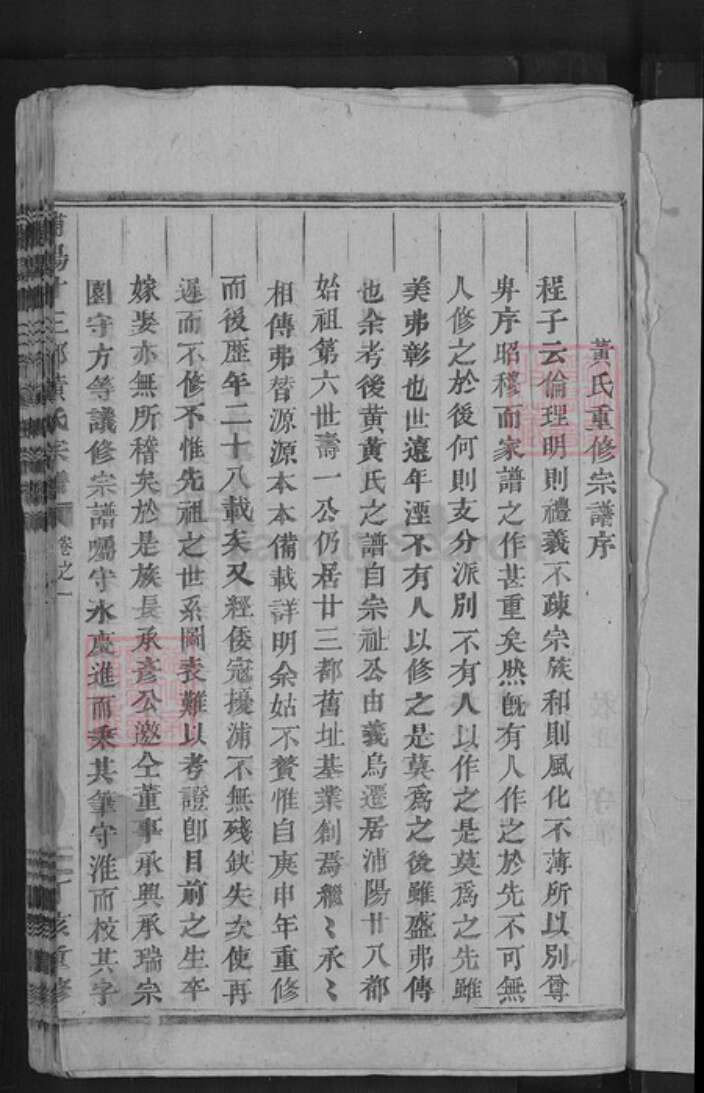 黃氏重修宗譜序
程子云倫理明則禮義不疎宗族和則風化不薄所以別尊
卑序昭穆而家譜之作甚重矣然旣有人作之於先不可無
人修之於後何則支分派別不有人以作之是莫爲之先雖
美弗彰也世遠年湮不有人以修之是莫爲之後雖盛弗傳
也余考後黄黃氏之譜自宗祉公由義烏遷居浦陽廿八都
始祖第六世壽一公仍居廿三都舊址基業創焉繼〻承〻
相傳弗替源源本本備載詳明余姑不贅惟自庚申年重修
而後歷年二十八載矣又經倭寇擾浦不無殘鈌失次使再
遲而不修不惟先祖之世系圖表難以考證卽目前之生卒
嫁娶亦無所稽矣於是族長承彥公邀仝董事承興承瑞宗
園守方等議修宗譜囑守永慶進而秉其筆守淮而校其字
浦陽廿三都黃氏宗譜 卷之一 丁亥重修